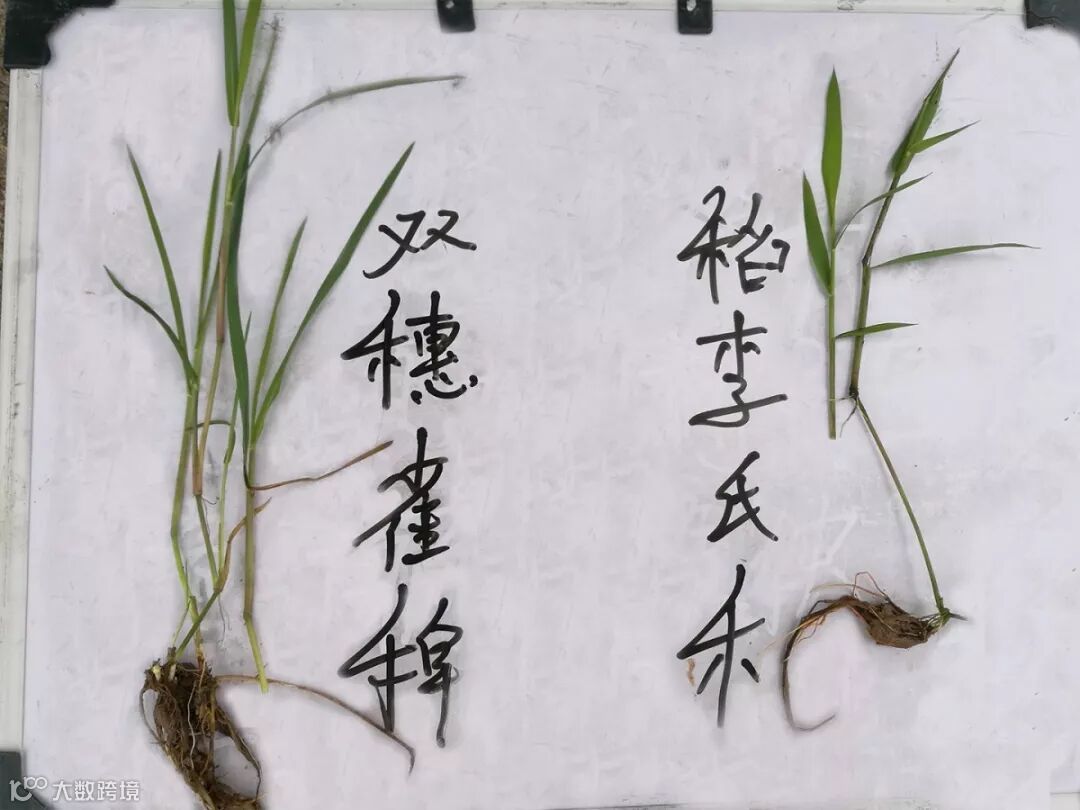 双穗雀稗
稻李氏禾
大数跨境